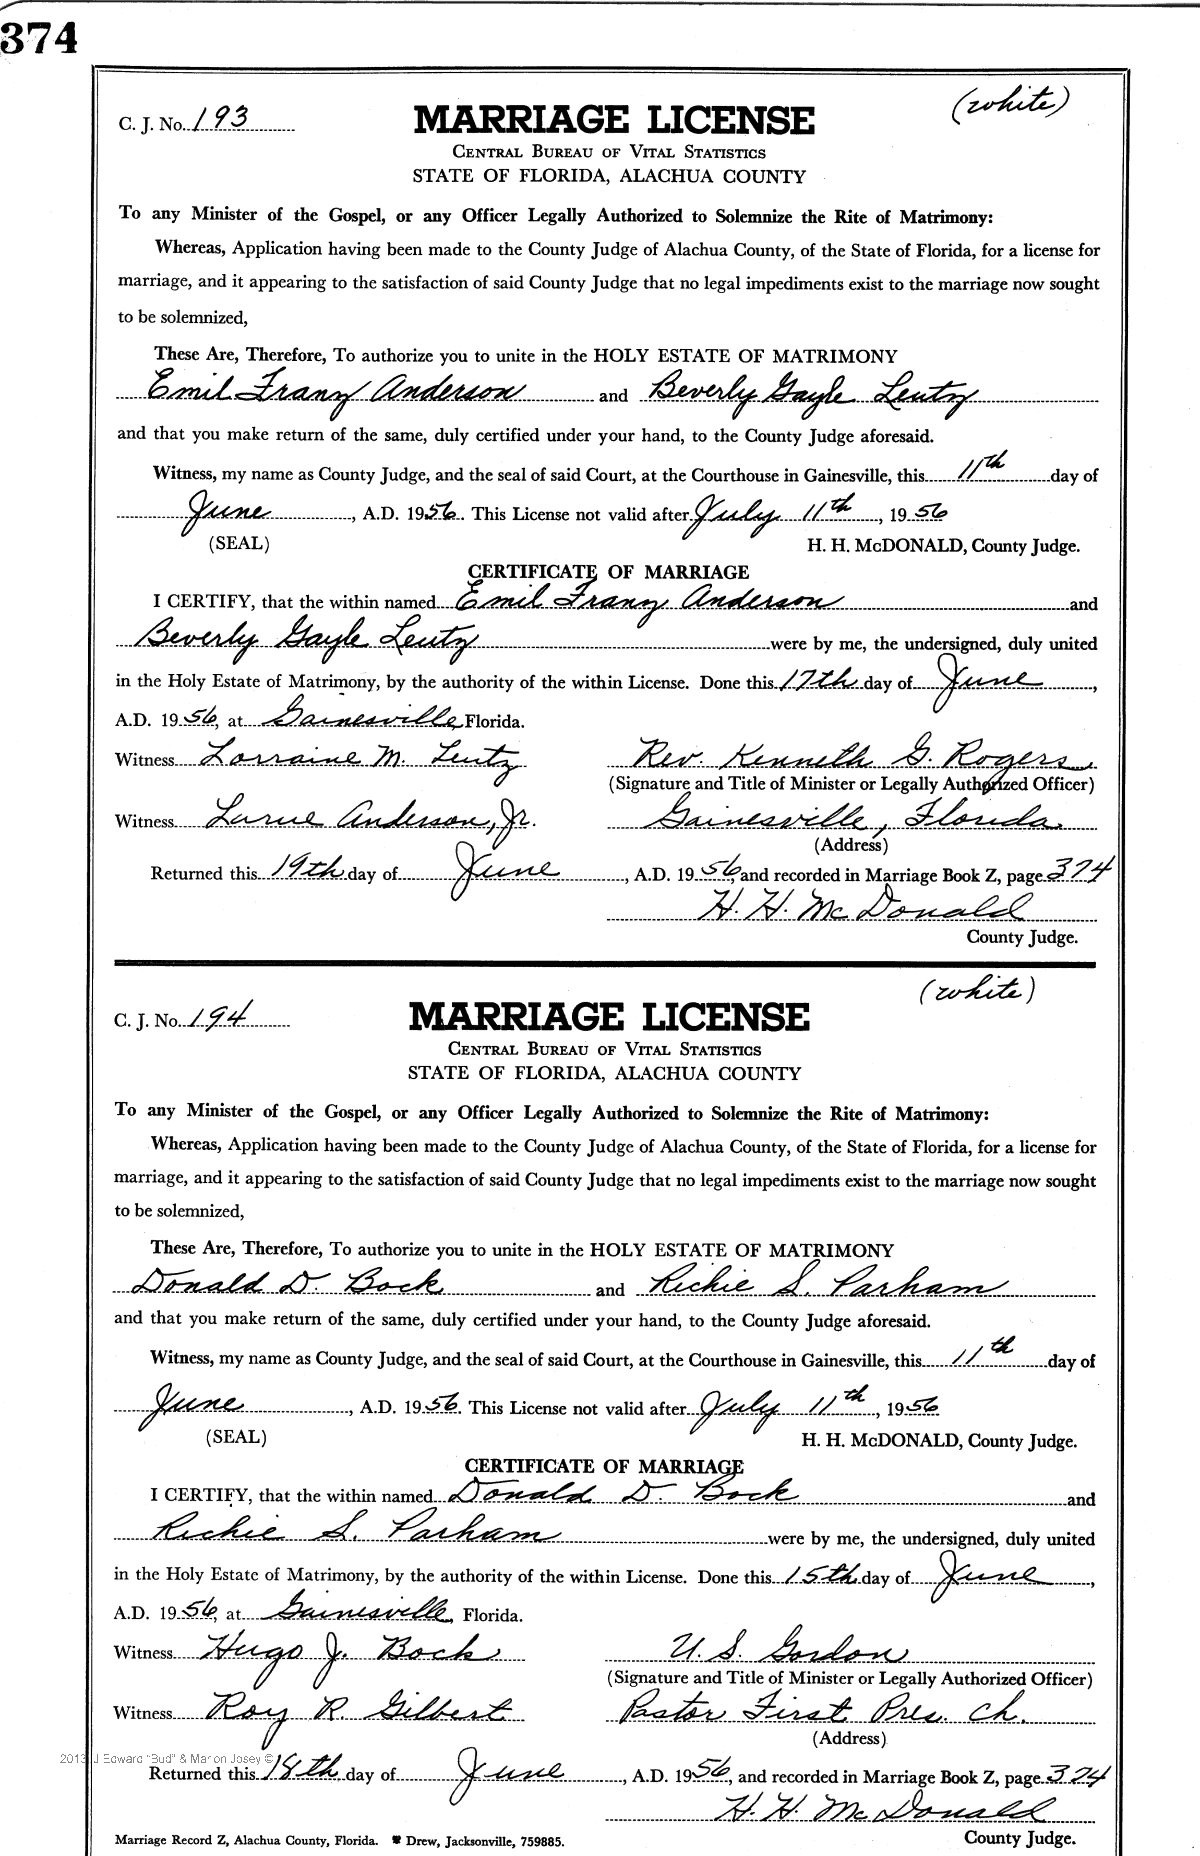 374
(white)
C. J. No. 193
MARRIAGE LICENSE
CENTRAL BUREAU OF VITAL STATISTICS
STATE OF FLORIDA, ALACHUA COUNTY
To any Minister of the Gospel, or any Officer Legally Authorized to Solemnize the Rite of Matrimony:
Whereas, Application having been made to the County Judge of Alachua County, of the State of Florida, for a license for
marriage, and it appearing to the satisfaction of said County Judge that no legal impediments exist to the marriage now sought
to be solemnized,
These Are, Therefore, To authorize you to unite in the HOLY ESTATE OF MATRIMONY
Emil Franz Anderson and Beverly Gayle Leutz
and that you make return of the same, duly certified under your hand, to the County Judge aforesaid.
Witness, my name as County Judge, and the seal of said Court, at the Courthouse in Gainesville, this 11th day of
June, A.D. 1956. This License not valid after July 11th, 1956
(SEAL) H. H. McDONALD, County Judge.
CERTIFICATE OF MARRIAGE
I CERTIFY, that the within named Emil Franz Anderson and
Beverly Gayle Leutz were by me, the undersigned, duly united
in the Holy Estate of Matrimony, by the authority of the within License. Done this 17th day of June,
A.D. 1956, at Gainesville, Florida.
Witness Lorraine M. Leutz Rev. Kenneth G. Rogers
(Signature and Title of Minister or Legally Authorized Officer)
Witness Larue Anderson, Jr. Gainesville, Florida
(Address)
Returned this 19th day of June, A.D. 1956, and recorded in Marriage Book Z, page 374
H. H. McDonald
County Judge.
(white)
C. J. No. 194
MARRIAGE LICENSE
CENTRAL BUREAU OF VITAL STATISTICS
STATE OF FLORIDA, ALACHUA COUNTY
To any Minister of the Gospel, or any Officer Legally Authorized to Solemnize the Rite of Matrimony:
Whereas, Application having been made to the County Judge of Alachua County, of the State of Florida, for a license for
marriage, and it appearing to the satisfaction of said County Judge that no legal impediments exist to the marriage now sought
to be solemnized,
These Are, Therefore, To authorize you to unite in the HOLY ESTATE OF MATRIMONY
Donald D. Bock and Richie S. Parham
and that you make return of the same, duly certified under your hand, to the County Judge aforesaid.
Witness, my name as County Judge, and the seal of said Court, at the Courthouse in Gainesville, this 11th day of
June, A.D. 1956. This License not valid after July 11th, 1956
(SEAL) H. H. McDONALD, County Judge.
CERTIFICATE OF MARRIAGE
I CERTIFY, that the within named Donald D. Bock and
Richie S. Parham were by me, the undersigned, duly united
in the Holy Estate of Matrimony, by the authority of the within License. Done this 15th day of June,
A.D. 1956, at Gainesville, Florida.
Witness Hugo J. Bock U. S. Gordon
(Signature and Title of Minister or Legally Authorized Officer)
Witness Roy R. Gilbert Pastor First Pres. Ch.
(Address)
2013 J Edward "Bud" & Marion Josey ©
Returned this 18th day of June, A.D. 1956, and recorded in Marriage Book Z, page 374
H. H. McDonald
Marriage Record Z, Alachua County, Florida. Drew, Jacksonville, 759885. County Judge.